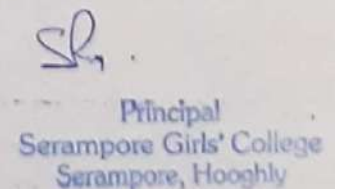 Principal
Serampore Girls' College
Serampore, Hooghly